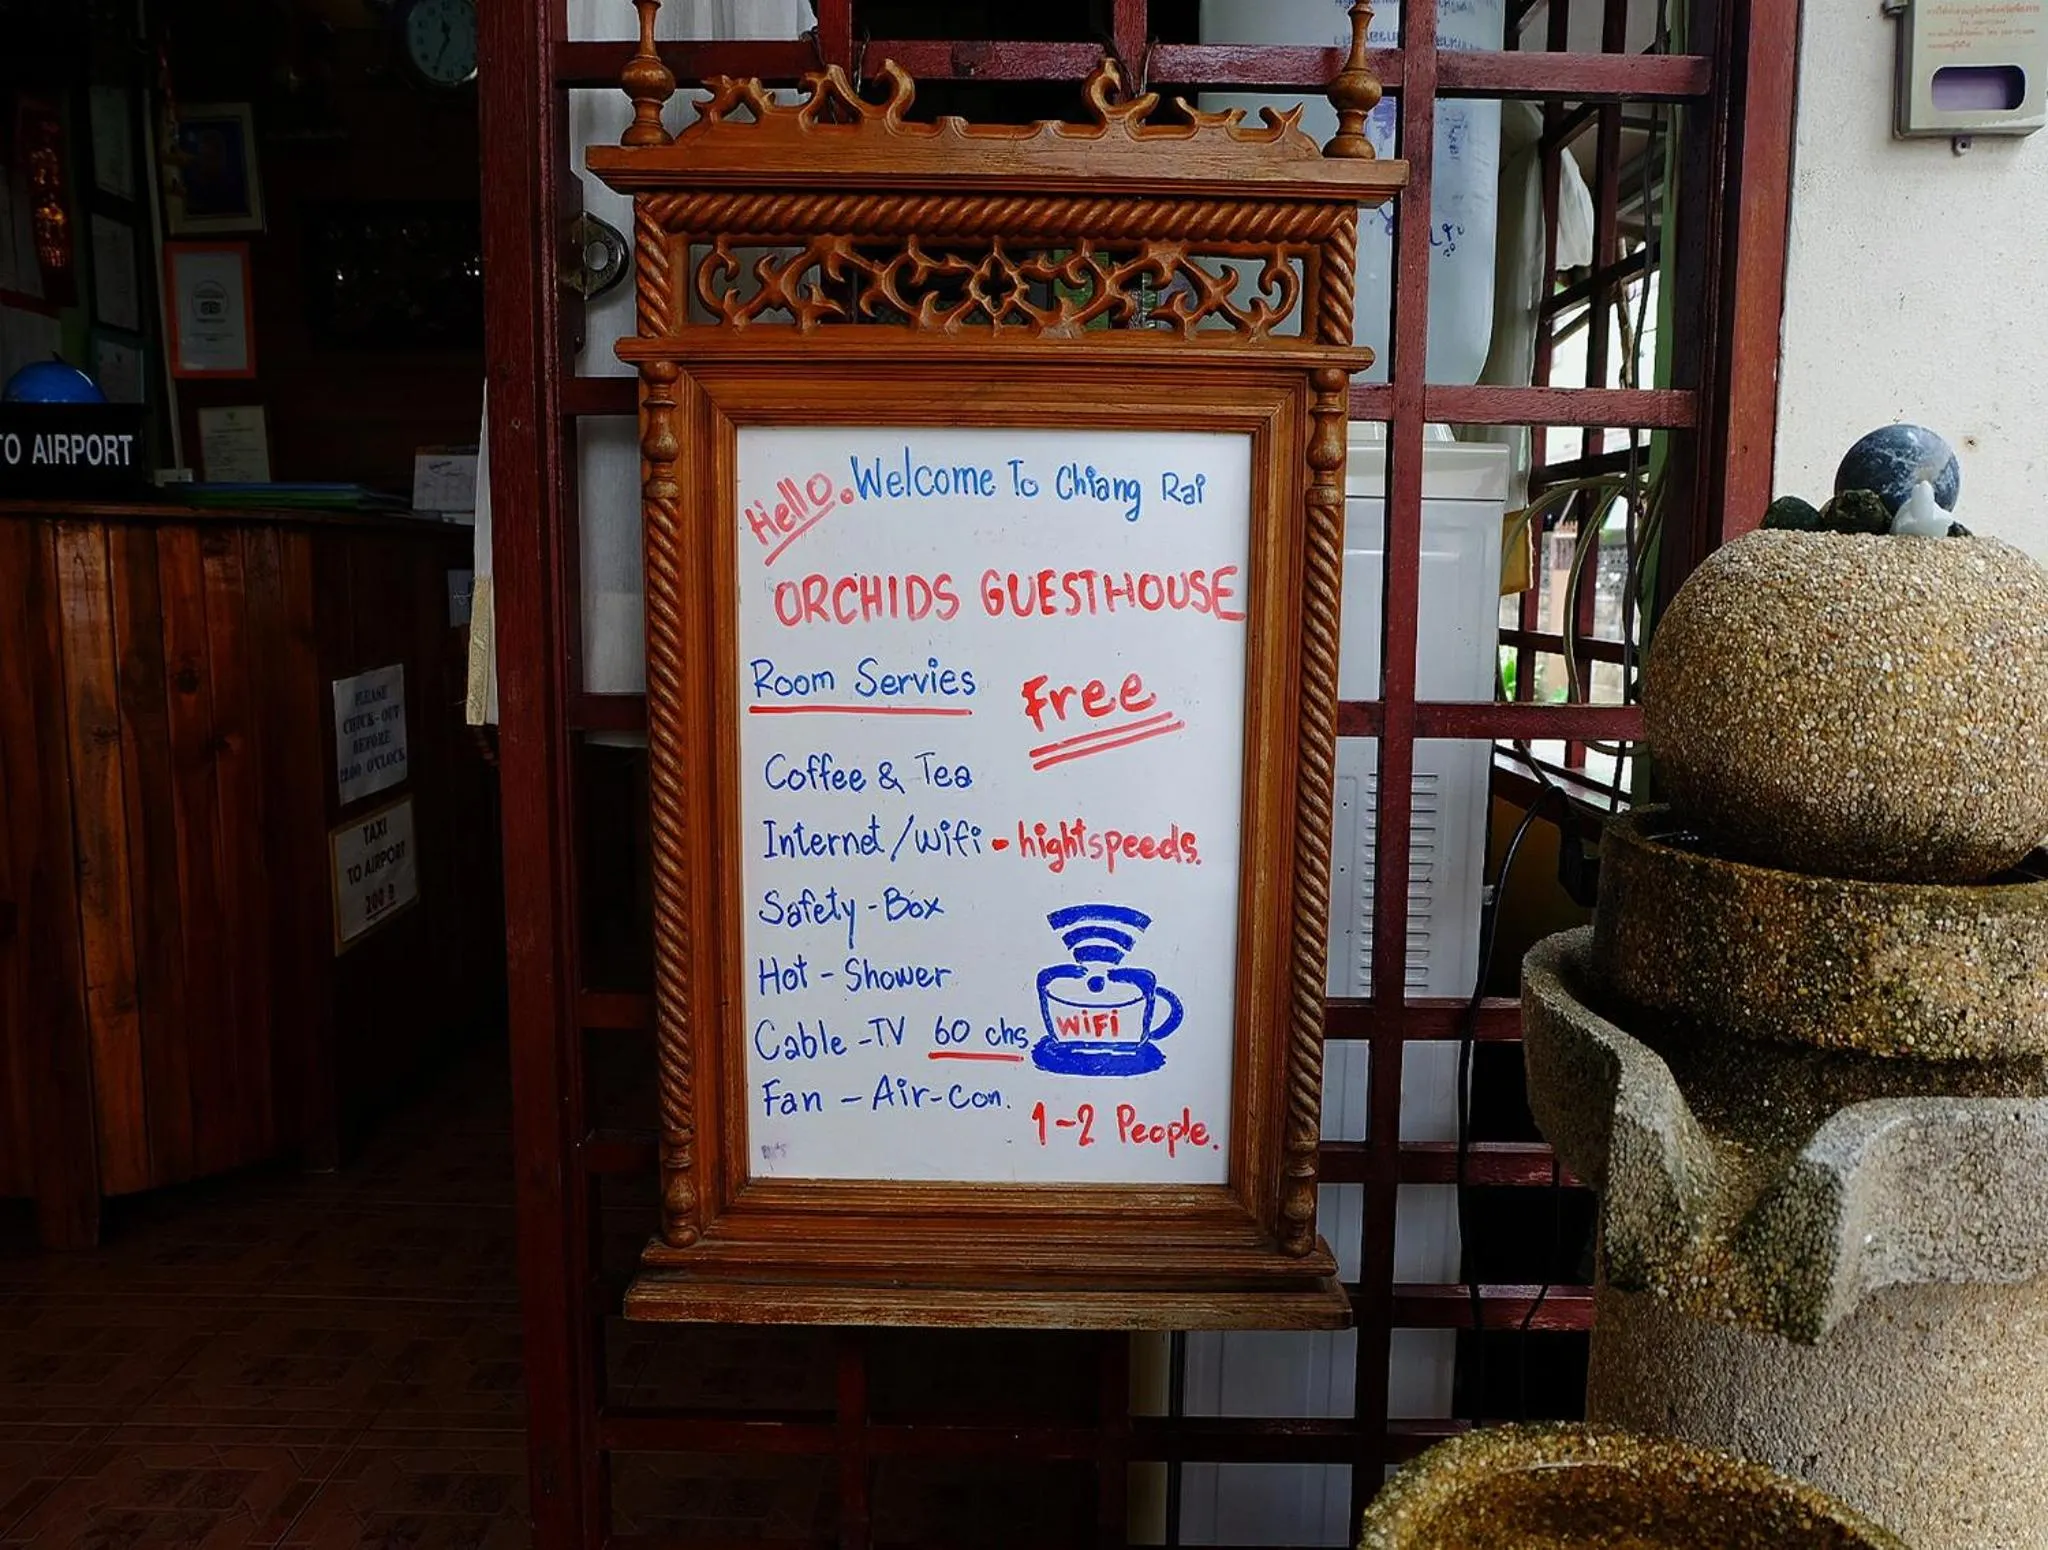 Hello. Welcome To Chiang Rai
ORCHIDS GUESTHOUSE
Room Servies
Free
Coffee & Tea
Internet/Wifi - hightspeeds.
Safety - Box
Hot - Shower
Cable - TV 60 chs
WiFi
Fan - Air-con.
1-2 People.
TO AIRPORT
PLEASE
CHECK-OUT
BEFORE
12.00 O'CLOCK
TAXI
TO AIRPORT
200 ฿